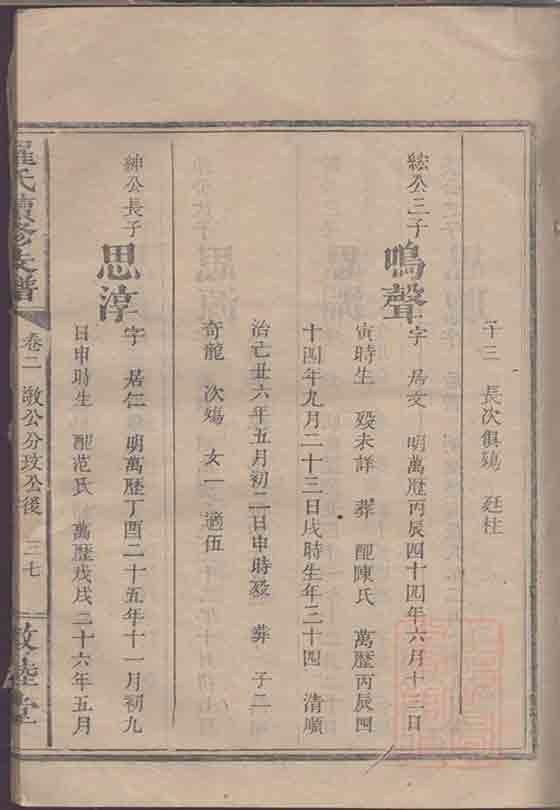 子三 長次俱殤 廷柱
絃公三子 鳴聲 字 居文 明萬歷丙辰四十四年六月十三日
寅時生 歿未詳 葬 配陳氏 萬歷丙辰四
十四年九月二十三日戌時生年三十四 清順
治己丑六年五月初二日申時歿 葬 子二
奇龍 次殤 女一 適伍
紳公長子 思淳 字 居仁 明萬歷丁酉二十五年十一月初九
日申時生 配范氏 萬歷戊戌二十六年五月
羅氏續修族譜 卷二 敬公分政公後 三七 敦睦堂